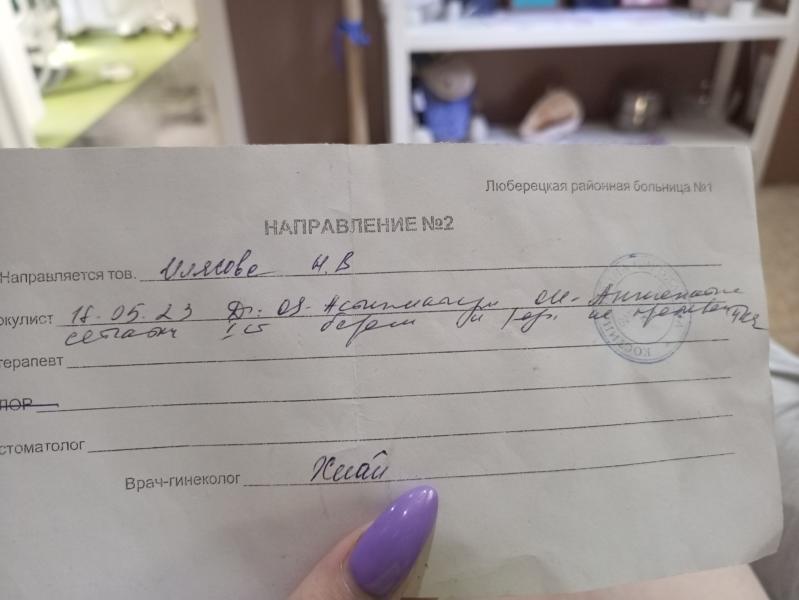 Люберецкая районная больница №1
НАПРАВЛЕНИЕ №2
Направляется тов. Илясова Н.В
окулист 18.05.23 Ds: OS-Астигматизм OU-Ангиопатия
сетчатки берем и род. не
терапевт
ЛОР
стоматолог
Врач-гинеколог